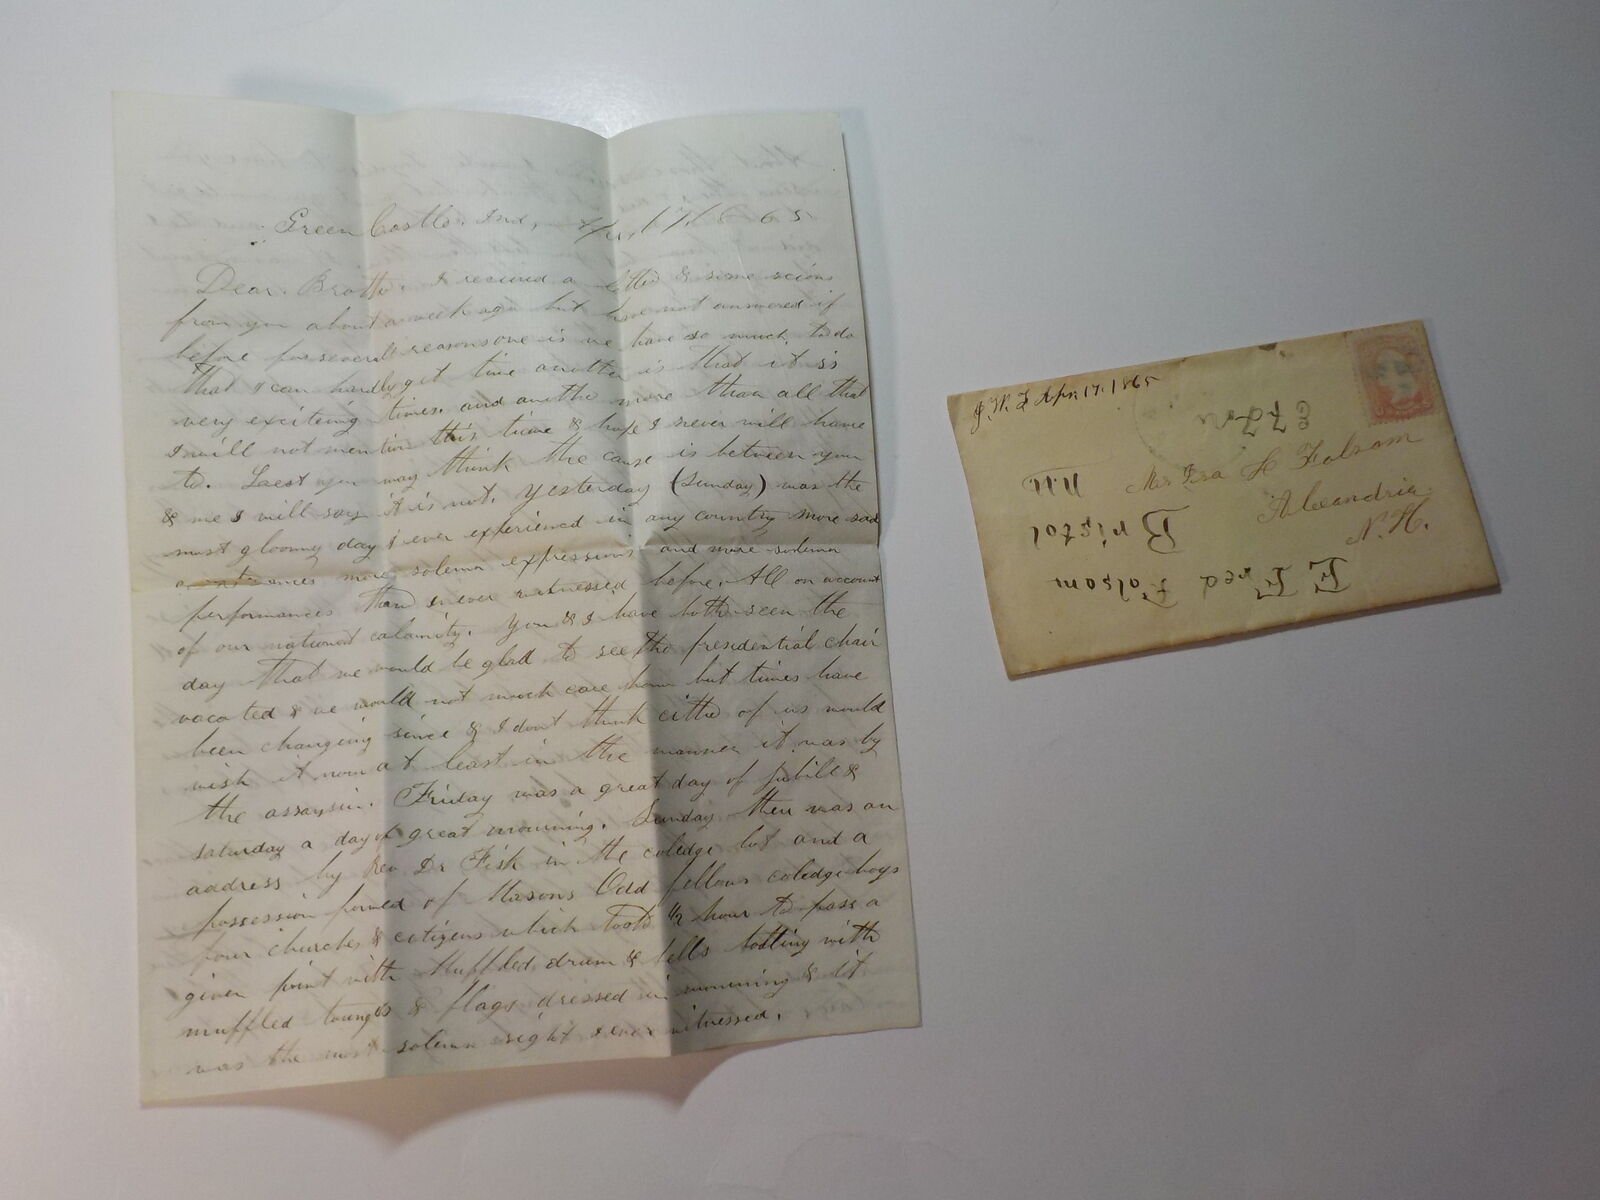 Green Castle, Ind, 17, 1865
Dear Brother I received a letter & some scions
from you about a week ago but have not answered it
before for severall reasons one is we have so much to do
that I can hardly get time another is that it is
very exciting times. and another more than all that
I will not mention this time & hope I never will have
to. Laest you may think the cause is between you
& me I will say it is not. Yesterday (Sunday) was the
most gloomy day I ever experienced in any country more sad
more solemn expressions and more solemn
performances than I never witnessed before. All on account
of our national calamity. You & I have both seen the
day that we would be glad to see the presidential chair
vacated & we would not much care how but times have
been changing since & I dont think either of us would
wish it now at least in the manner it was by
the assassin. Friday was a great day of jubile &
saturday a day of great mourning. Sunday there was an
address by Rev Dr Fisk in the coledge lot and a
possession formed of Masons Odd fellows coledge boys
four churches & citizens which took 1/2 hour to pass a
given point with Muffled drum & bells tolling with
muffled toungs & flags dressed in mourning & it
was the most solemn sight I ever witnessed.
J. W. F. Apr. 17. 1865
Mr Ira H Folsom
Alexandria
N. H.
E Fred Folsom
Bristol
N.H.